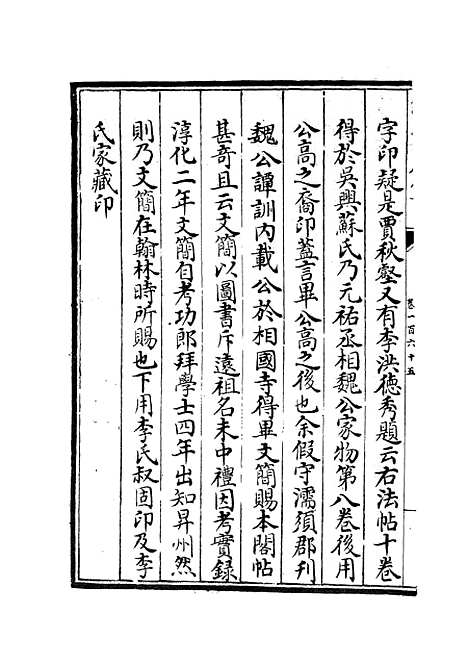 字印疑是賈秋壑又有李洪徳秀題云右法帖十卷
得於吳興蘇氏乃元祐丞相魏公家物第八卷後用
公高之裔印蓋言畢公高之後也余假守濡須郡刊
魏公譚訓内載公於相國寺得畢文簡賜本閣帖
甚奇且云文簡以圖書斥逺祖名未中禮因考實錄
淳化二年文簡自考功郎拜學士四年出知昇州然
則乃文簡在翰林時所賜也下用李氏叔固印及李
氏家藏印
卷一百六十五